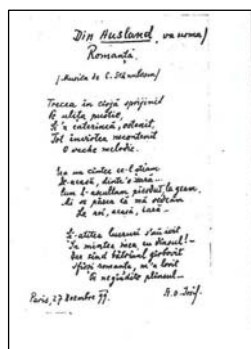 Din Ausland, va urma)
Romanță.
(Musica de C. Stănulescu)
Trecea în cîrjă sprijinit
Pe ulița pustie,
Și'n caterincă, ostenit,
Tot învîrtea necontenit
O veche melodie.
Era un cîntec ce-l știam
De-acasă, dintr'o seară...
Cum l-ascultam pierdut la geam,
Mi se părea că mă vedeam
La noi, acasă, iară...
Și-atîtea lucruri s'au ivit
În mintea mea cu dînsul! –
Dar cînd bătrînul gîrbovit
Sfîrși romanța, m'a lovit
Pe negîndite plînsul...
Paris, 27 Decembre 99.
St. O. Iosif.